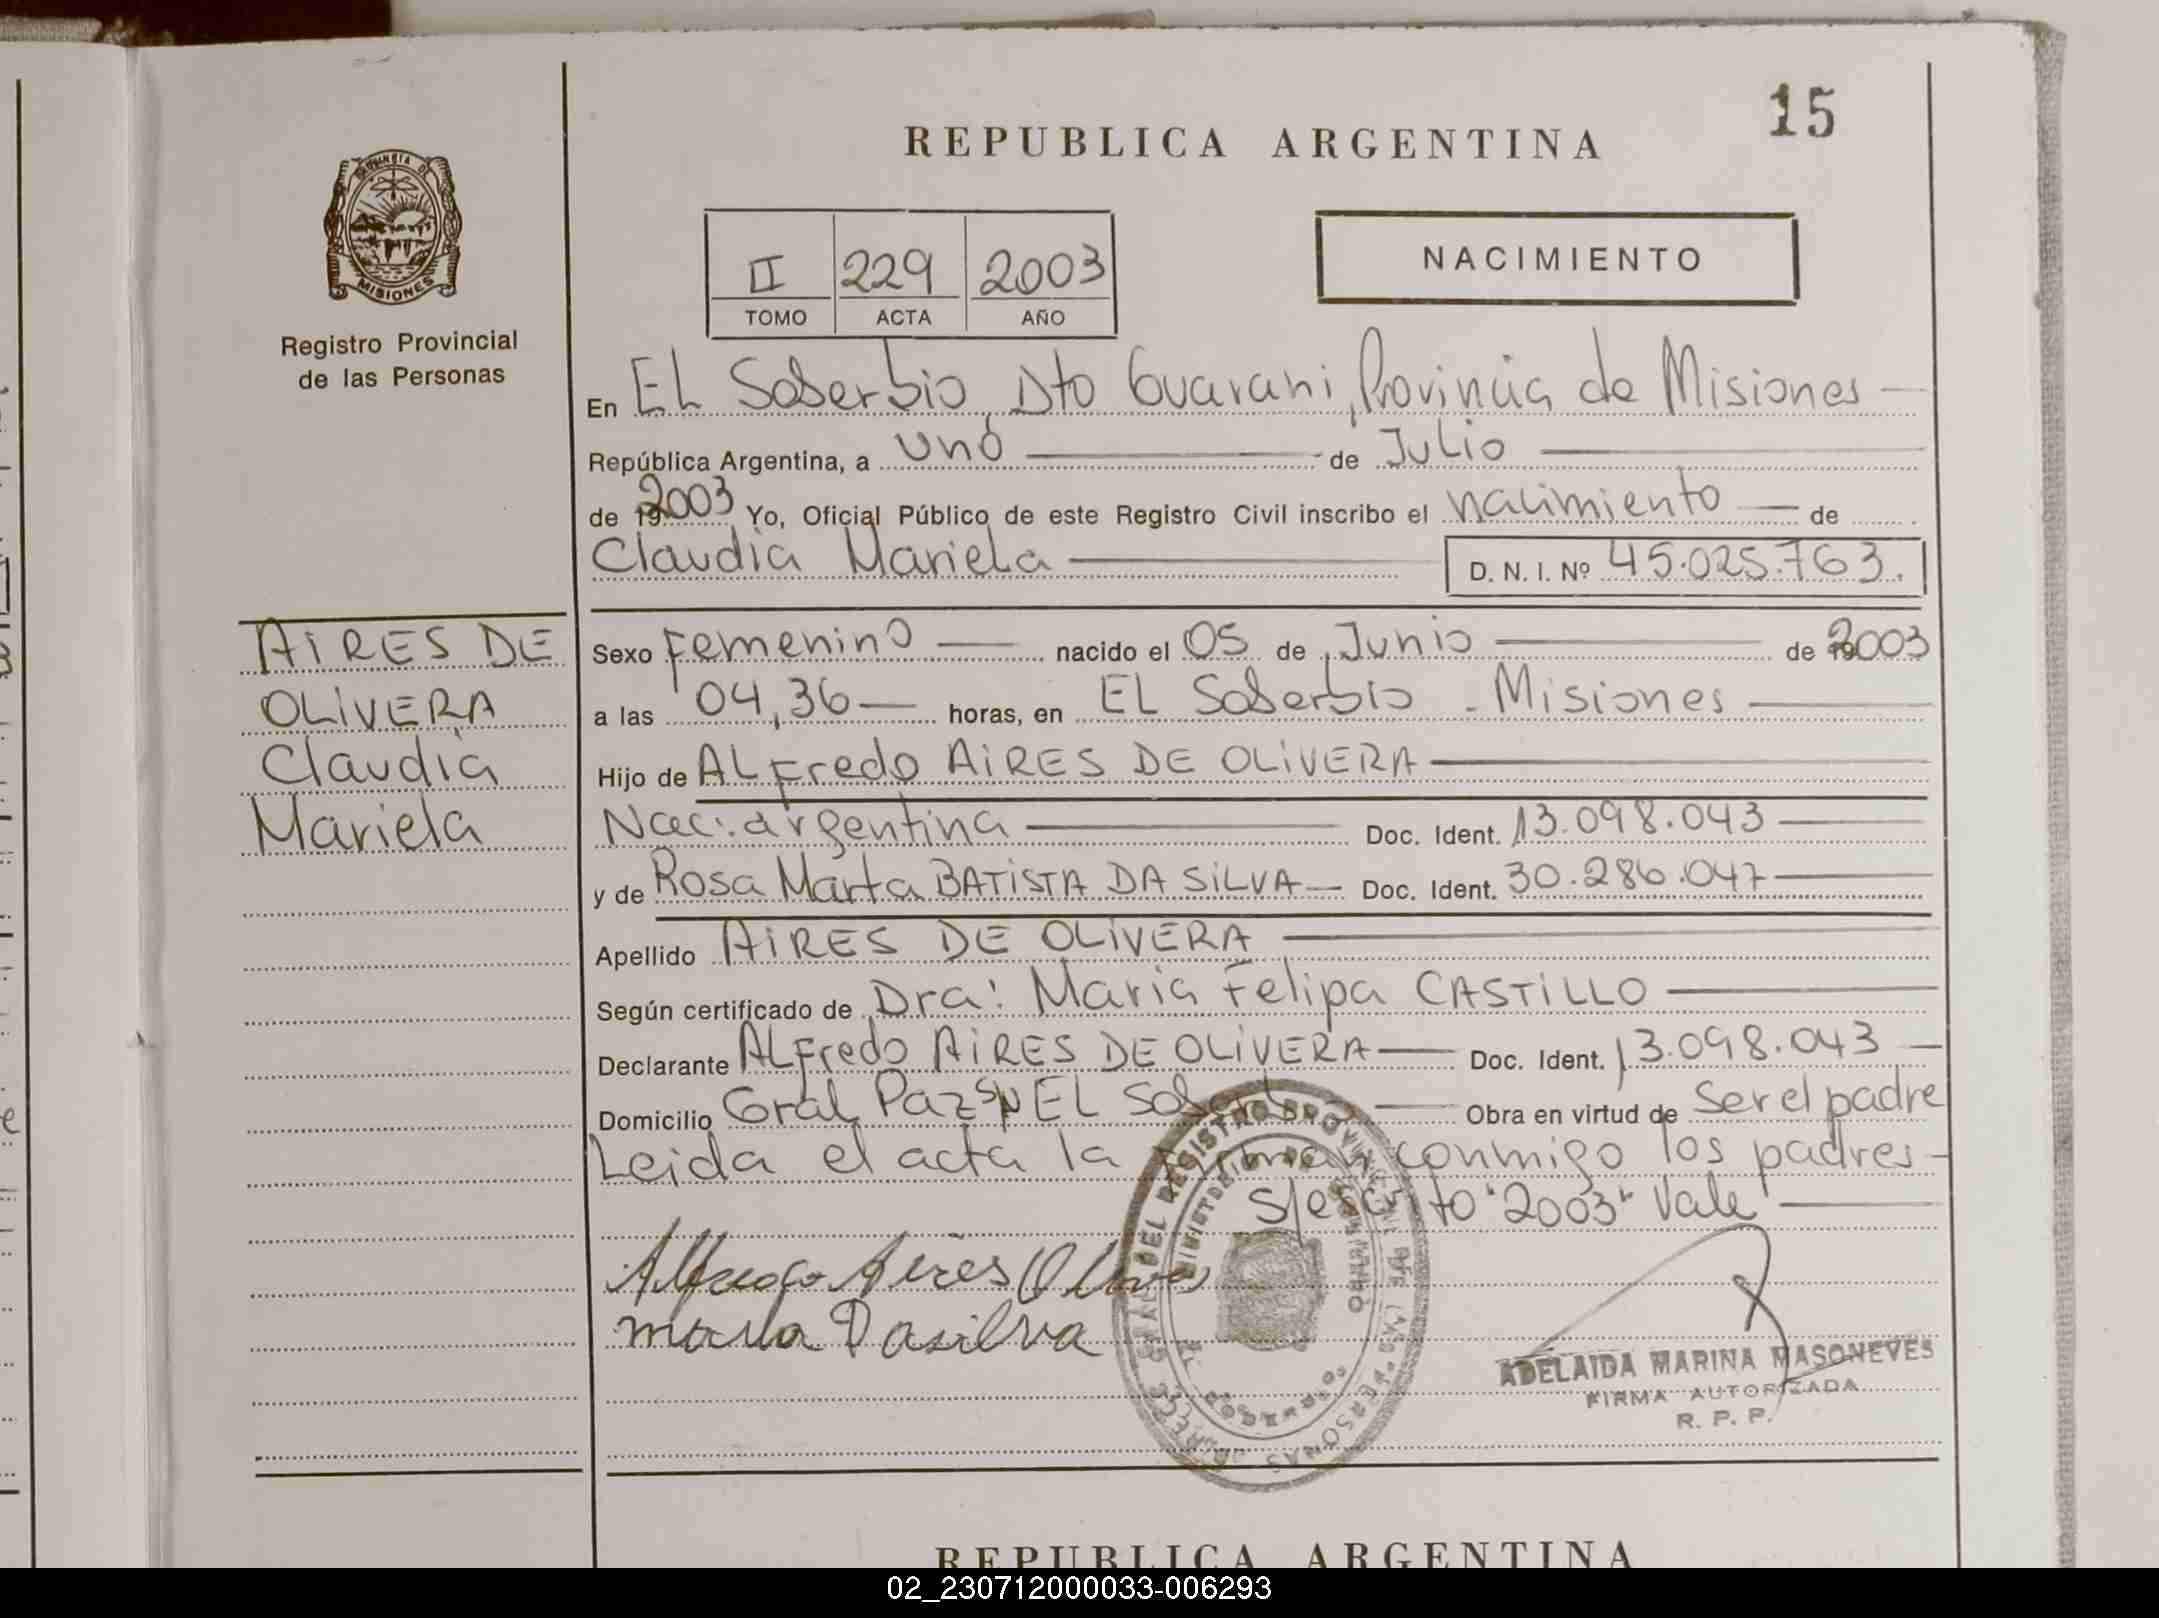 15
REPUBLICA ARGENTINA
PROVINCIA DE
MISIONES
Registro Provincial
de las Personas
II 229 2003
TOMO ACTA AÑO
NACIMIENTO
En EL Soberbio, Dto Guarani, Provincia de Misiones
República Argentina, a uno de Julio
de 2003 Yo, Oficial Público de este Registro Civil inscribo el nacimiento de
Claudia Mariela D. N. I. Nº 45.025.763.
AIRES DE
OLIVERA
Claudia
Mariela
Sexo Femenino nacido el 05 de Junio de 2003
a las 04,36 horas, en EL Soberbio - Misiones
Hijo de ALFredo AIRES DE OLIVERA
Nac: argentina Doc. Ident. 13.098.043
y de Rosa Marta BATISTA DA SILVA Doc. Ident. 30.286.047
Apellido AIRES DE OLIVERA
Según certificado de Dra: Maria Felipa CASTILLO
Declarante ALFredo AIRES DE OLIVERA Doc. Ident. 13.098.043
Domicilio Gral Paz S/N EL Sob Obra en virtud de Ser el padre
Leida el acta la firman conmigo los padres
S/escrito "2003" Vale
Alfredo Aires Olivera
marta Dasilva
ADELAIDA MARINA MASONEVES
FIRMA AUTORIZADA
R. P. P.
REPUBLICA ARGENTINA
02_230712000033-006293